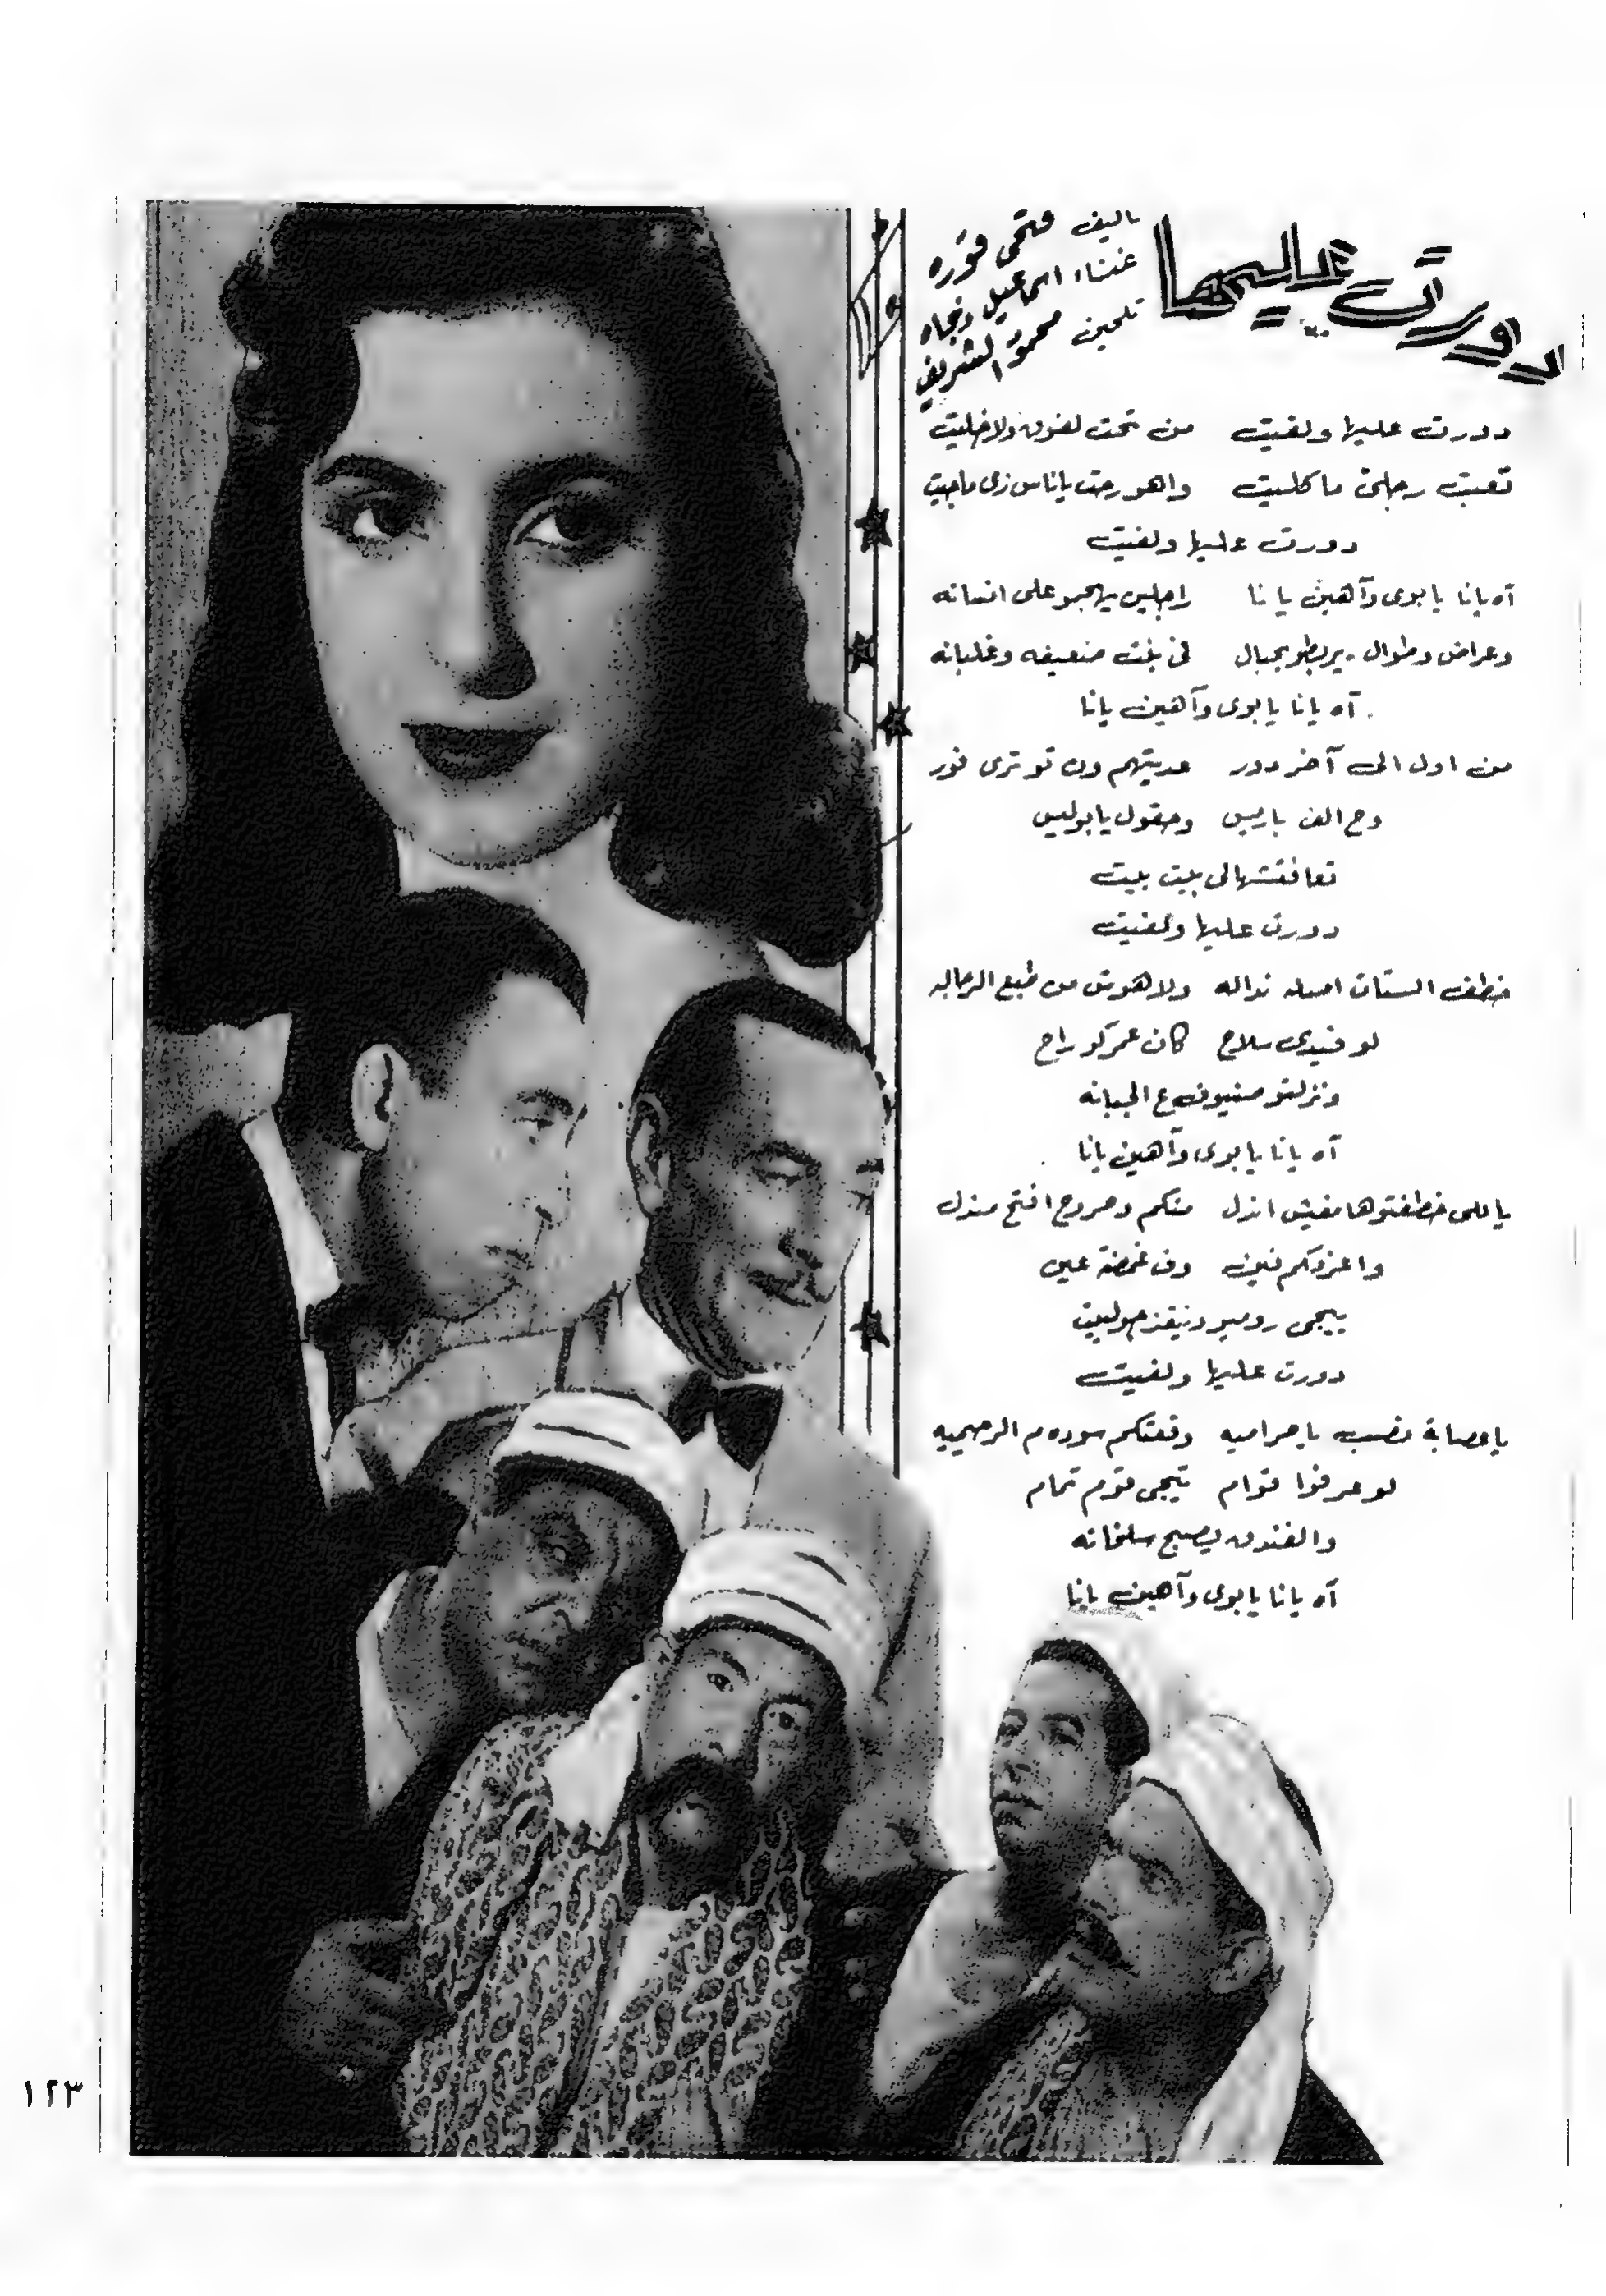 دورت عليها
تاليف فتحى قوره
غناء اسماعيل ونجاه
تلحين محمود الشريف
دورت عليها ولفيت من تحت لفوق ولا خليت
تعبت رجلى ما كليت واهو رحت يا ناس زى ما جيت
دورت عليها ولفيت
آه يانا يا بوى وآهين يا نا راجلين يهجمو على انسانه
وعراض وطوال يربطو بحبال فى بنت ضعيفه وغلبانه
آه يانا يا بوى وآهين يانا
من اول الى آخر دور عديتهم ون تو ترى فور
وح الف باريس وحقول يا بوليس
تعا فتشهالى بيت بيت
دورت عليها ولفيت
خطف الستات اصله نداله ولا هوش من طبع الرجاله
لو فيدى سلاح كان عمركو راح
ونزلتو ضيوف ع الجبانه
آه يانا يا بوى وآهين يانا
ياللى خطفتوها مفيش انزل منكم وحروح افتح مندل
واعرفكم فين وف غمضة عين
ييجى روميو وينقذ جولييت
دورت عليها ولفيت
يا عصابة نصب يا حراميه وقعتكم سوده م الرحيميه
لو عرفوا قوام تيجى قوم تمام
والفندق يصبح سلخانه
آه يانا يا بوى وآهين يانا
١٢٣